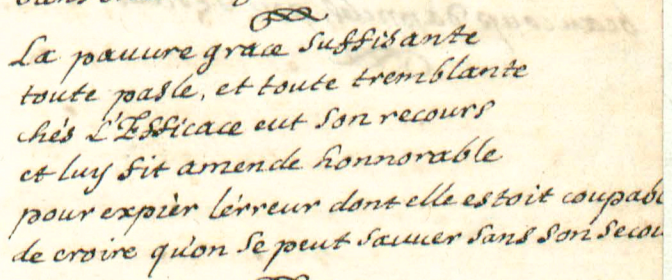 La pauure grace suffisante
toute pasle, et toute tremblante
chés L'Efficace eut son recours
et luy fit amende honnorable
pour expièr lérreur dont elle estoit coupabl
de croire qu'on se peut sauuer sans son secou